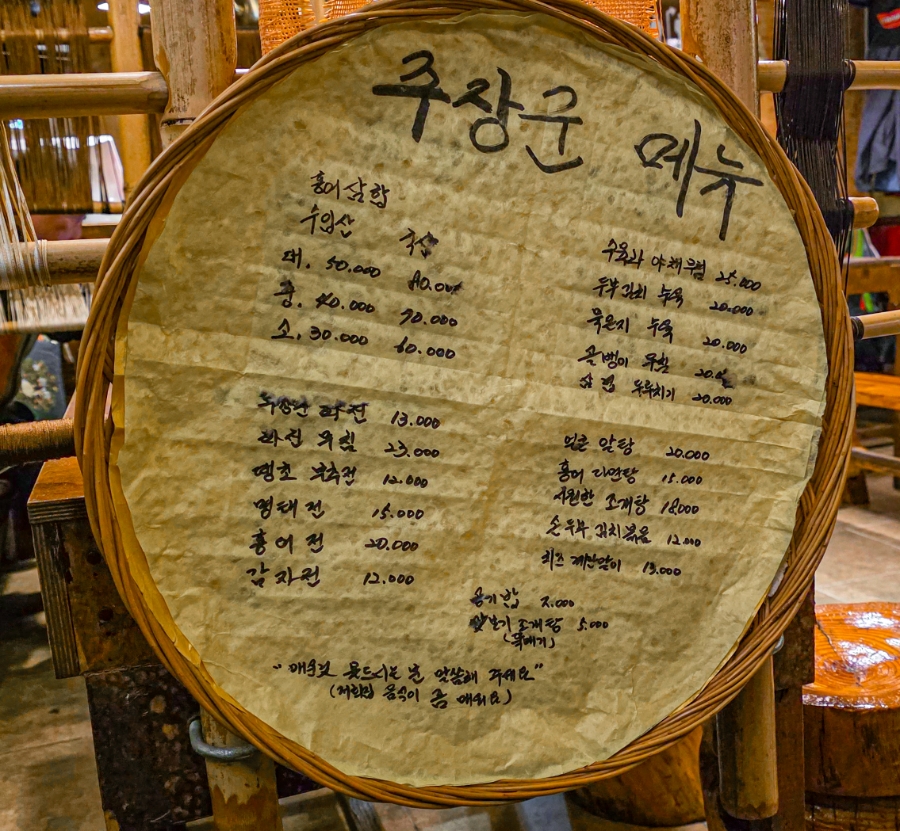 주장군 메뉴
홍어삼합
수입산 국산
대. 50.000 80.000
중. 40.000 70.000
소. 30.000 60.000
주장군 파전 13.000
파전 무침 23.000
땡초 부추전 12.000
명태전 15.000
홍어전 20.000
감자전 12.000
수육과 야채무침 25.000
두부김치 수육 20.000
묵은지 수육 20.000
골뱅이 무침 20.000
두루치기 20.000
얼큰 알탕 20.000
홍어 15.000
시원한 조개탕 18.000
손두부 김치볶음 12.000
치즈 계란말이 13.000
공기밥
맛보기 조개탕 5.000
(뚝배기)
"매운것 못드시는 분 말씀해 주세요"
(저희집 음식이 좀 매워요)